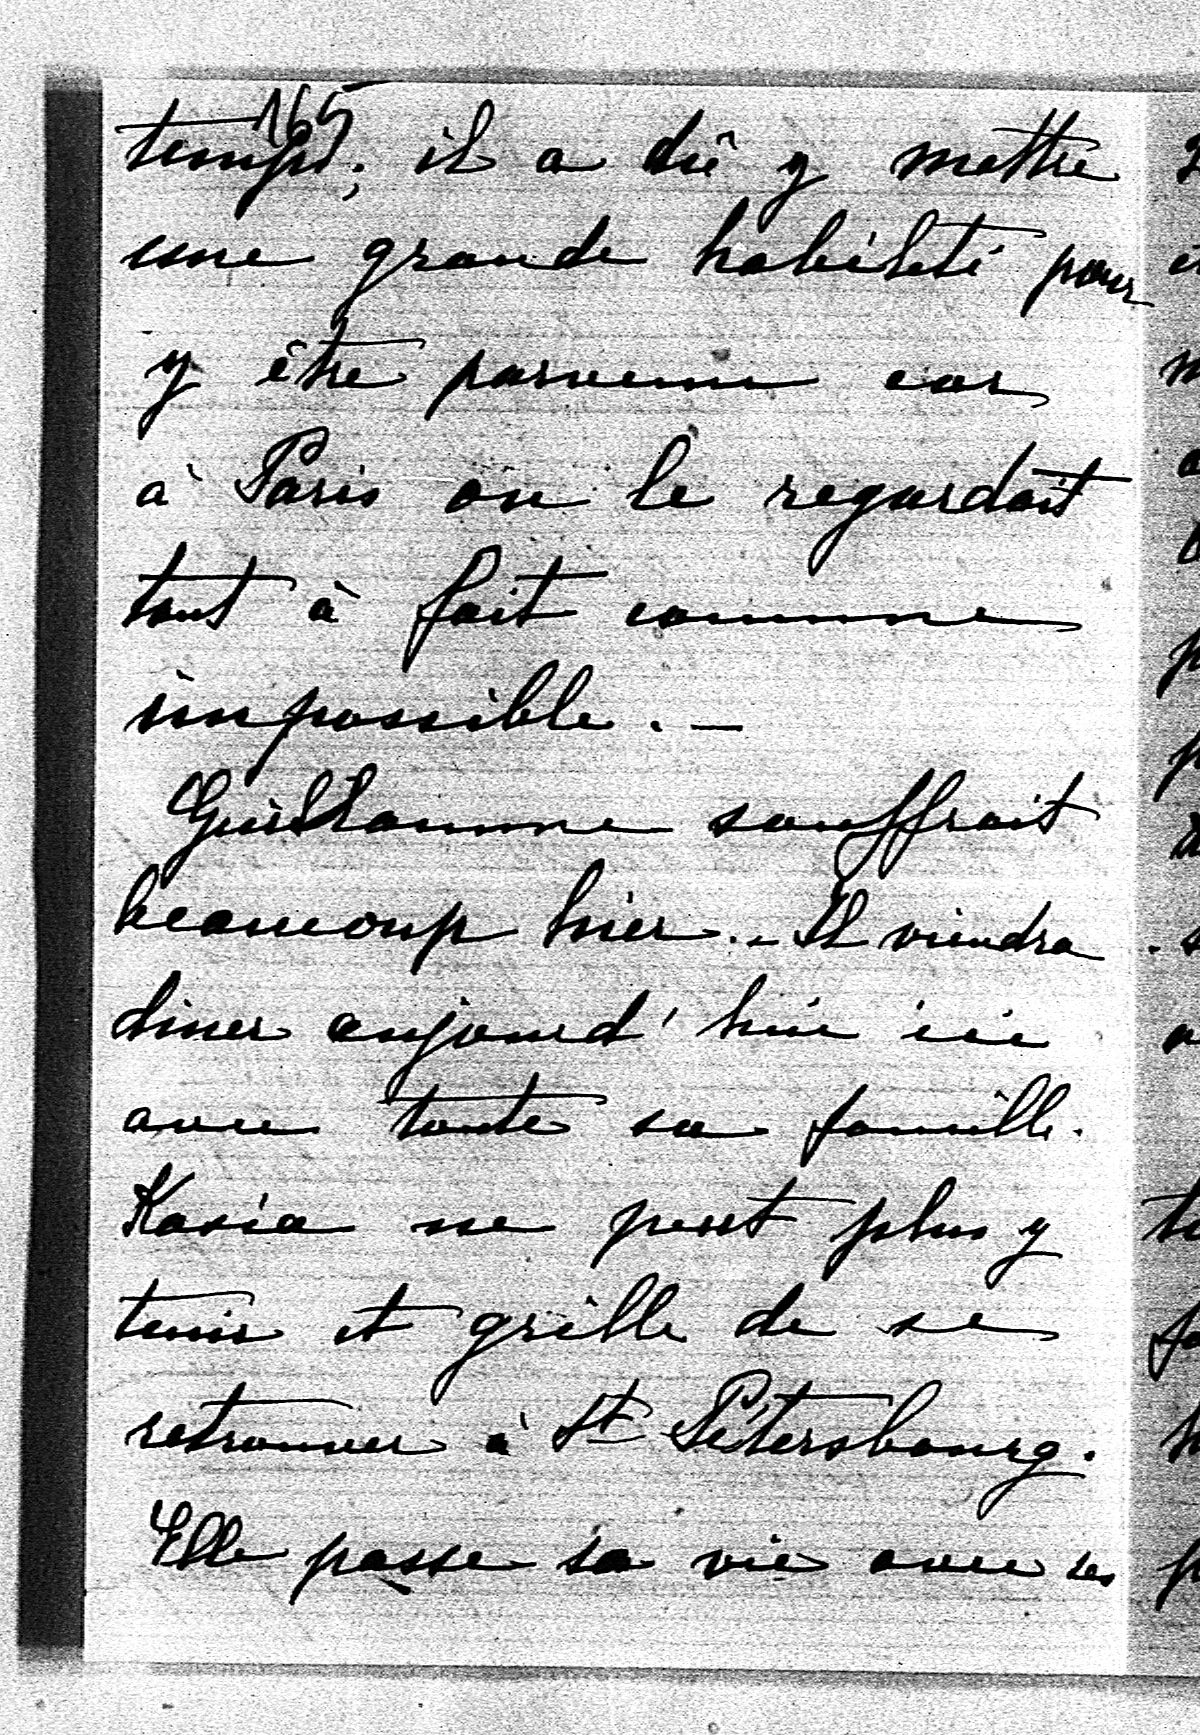 165
temps; il a dû y mettre
une grande habileté pour
y être parvenu car
à Paris on le regardait
tout à fait comme
impossible. —
Guillaume souffrait
beaucoup hier. – Il viendra
diner aujourd'hui ici
avec toute sa famille.
Kasia ne peut plus y
tenir et grille de se
retrouver à St Pétersbourg.
Elle passe sa vie avec ses